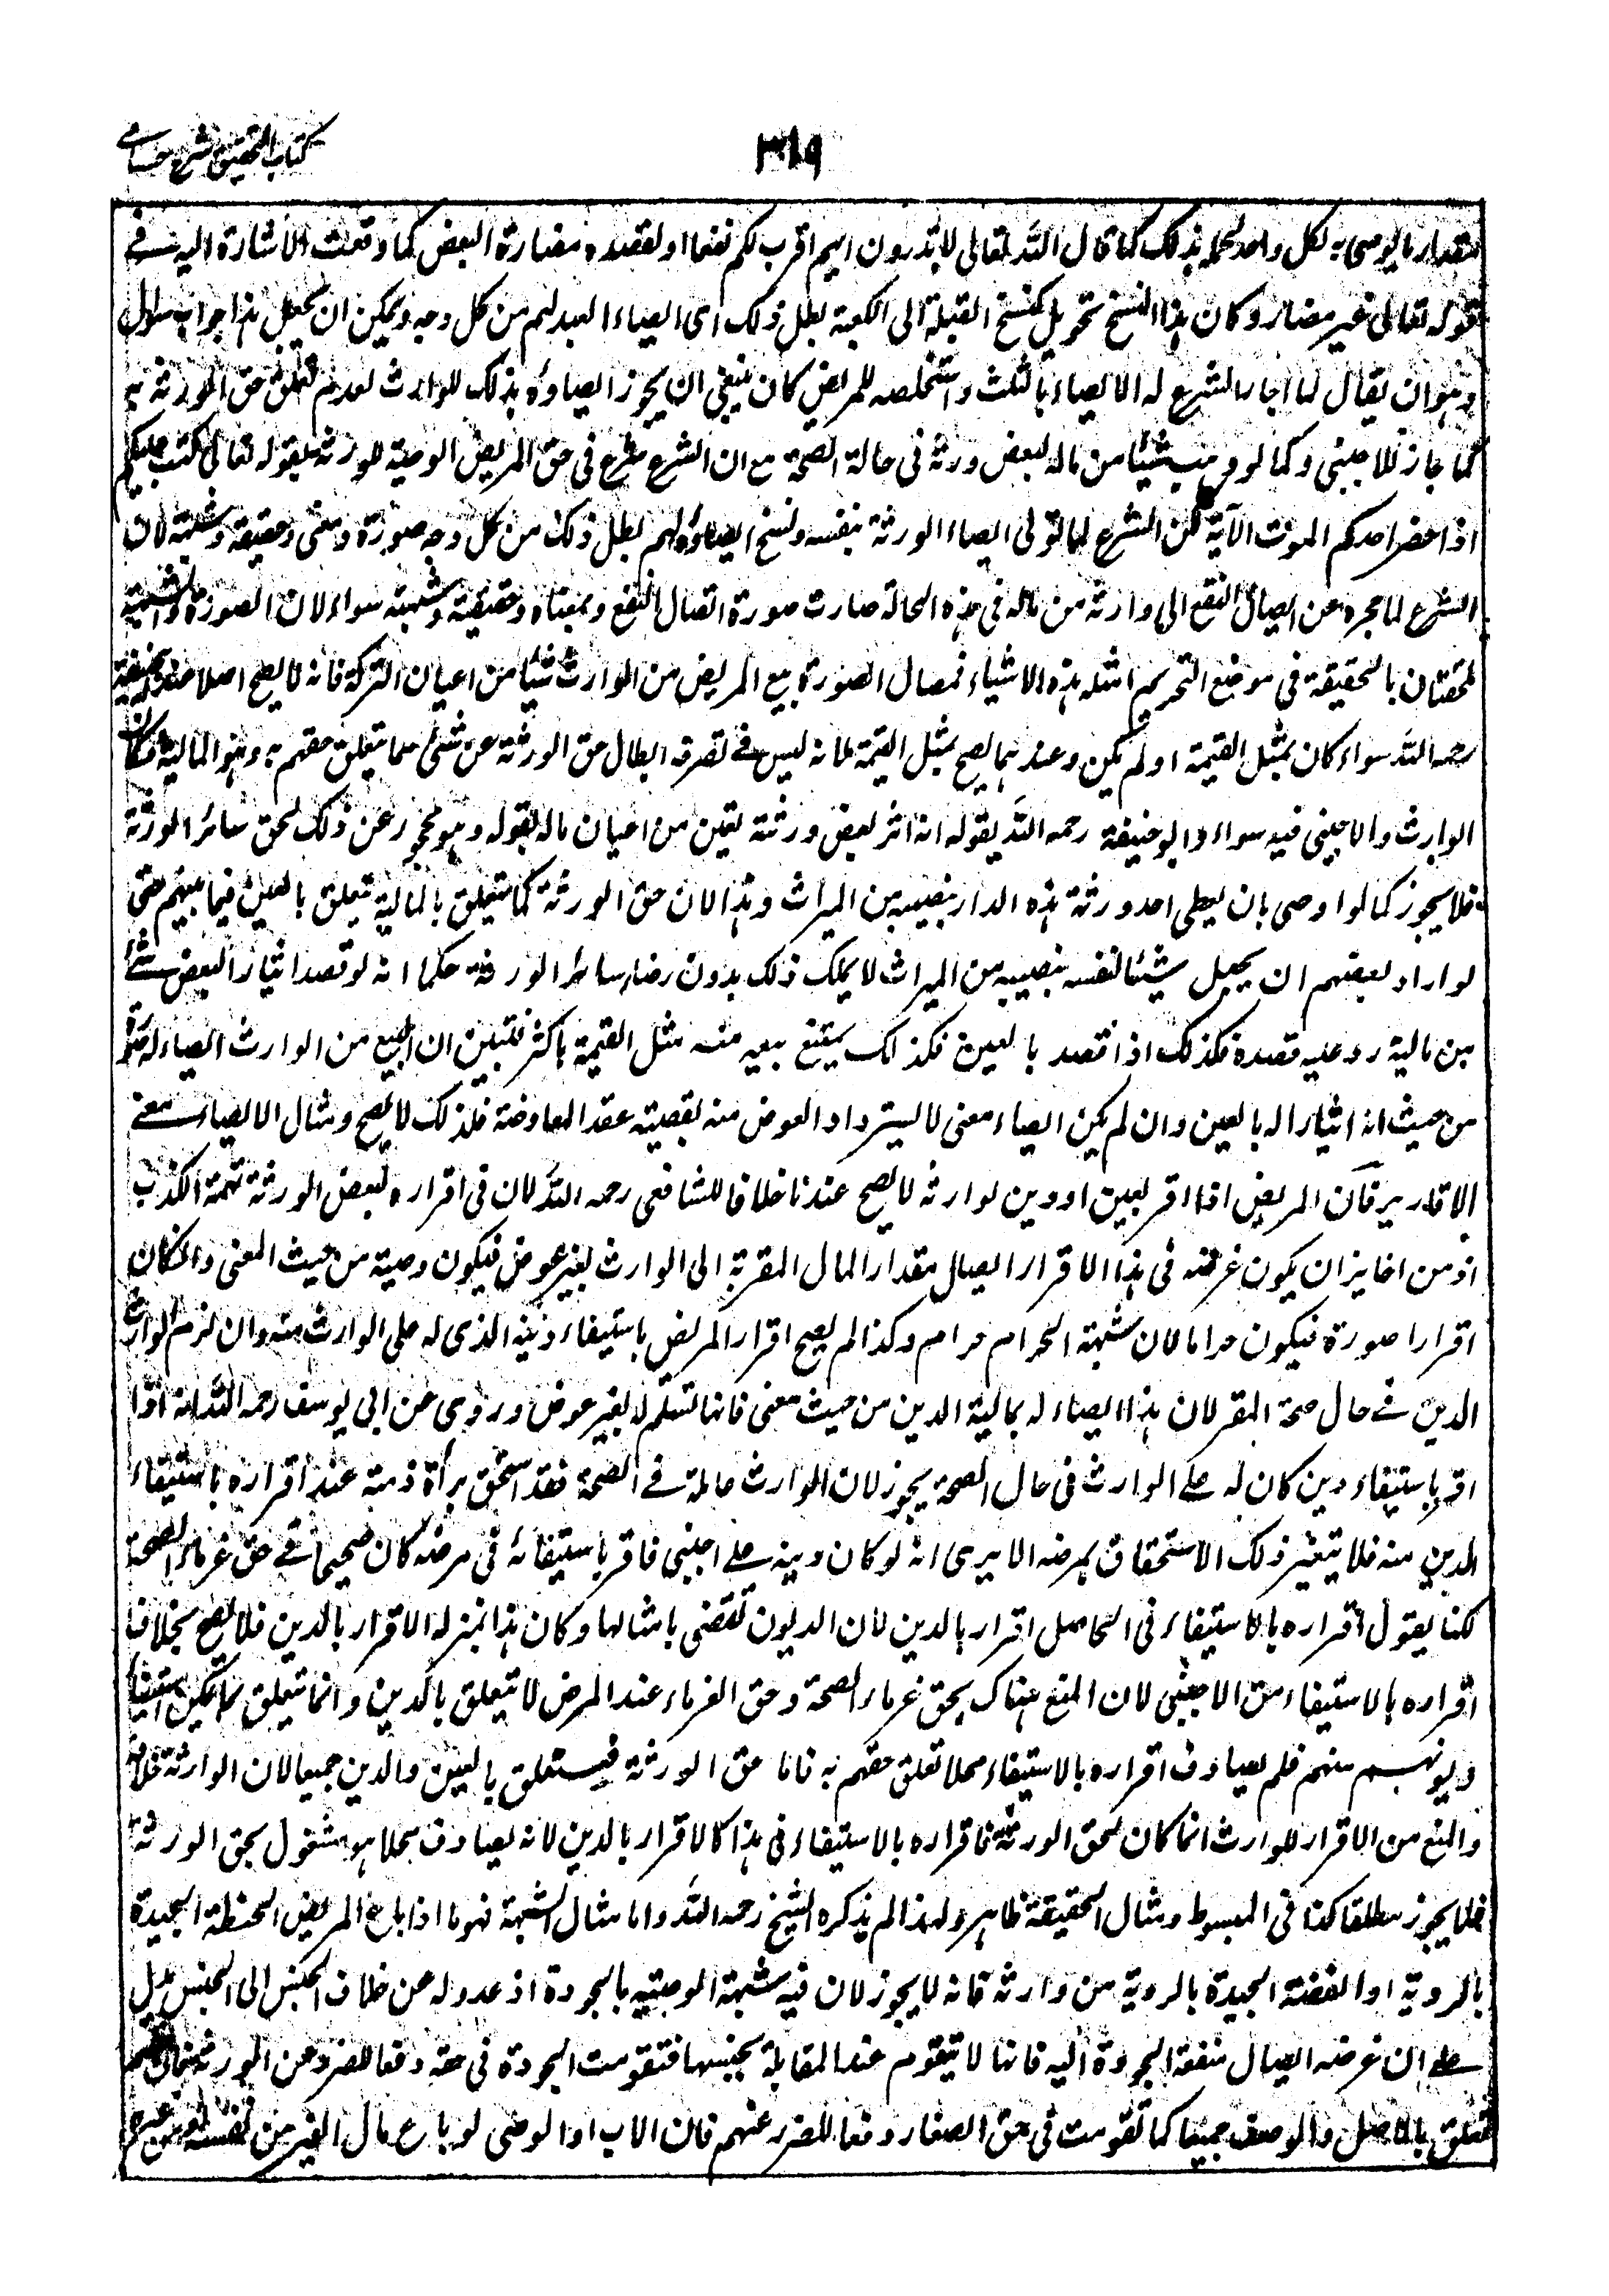 كتاب التحقيق شرح حسامي
٣١٩
مقدار ما يوصى به لكل واحد لجهله بذلك كما قال الله تعالى لا تدرون ايهم اقرب لكم نفعا او لقصده مضارة البعض كما وقعت الاشارة اليه في
قوله تعالى غير مضار وكان هذا النسخ تحويل كنسخ القبلة الى الكعبة بطل ذلك اى ايصاء العبد لهم من كل وجه ويمكن ان يجعل هذا جواب سوال
وهو ان يقال لما اجاز الشرع له الايصاء بالثلث واستخلصه للمريض كان ينبغي ان يجوز ايصاؤه بذلك للوارث لعدم تعلق حق الورثة به
كما جاز للاجنبى وكما لو وهب شيئا من ماله لبعض ورثته فى حالة الصحة مع ان الشرع شرع فى حق المريض الوصية للورثة بقوله تعالى كتب عليكم
اذا حضر احدكم الموت الآية لكن الشرع لما تولى ايصاء الورثة بنفسه ونسخ ايصاؤه لهم بطل ذلك من كل وجه صورة ومعنى وحقيقة وشبهة لان
الشرع لما حجره عن ايصال النفع الى وارثه من ماله فى هذه الحالة صارت صورة اتصال النفع ومعناه وحقيقته وشبهته سواء لان الصورة والشبهة
ملحقتان بالحقيقة فى موضع التحريم امثله هذه الاشياء فمثال الصورة بيع المريض من الوارث شيئا من اعيان التركة فانه لا يصح اصلا عند ابي حنيفة
رحمه الله سواء كان بمثل القيمة او لم يكن وعندهما يصح بمثل القيمة لما نه ليس فى تصرفه ابطال حق الورثة عن شئ مما يتعلق حقهم به وهو المالية فكان
الوارث والاجنبى فيه سواء وابو حنيفة رحمه الله يقول انه اثر بعض ورثته بعين من اعيان ماله بقوله وهو محجور عن ذلك لحق سائر الورثة
فلا يجوز كما لو اوصى بان يعطى احد ورثته هذه الدار بنصيبه من الميراث وهذا لان حق الورثة كما يتعلق بالمالية يتعلق بالعين فيما بينهم حتى
لو اراد بعضهم ان يجعل شيئا لنفسه بنصيبه من الميراث لا يملك ذلك بدون رضاء سائر الورثة حكما انه لو قصد ايثار البعض بشئ
من مالية رد عليه قصده فكذلك اذا قصد بالعين فكذلك يمتنع بيعه منه مثل القيمة باكثر فتبين ان البيع من الوارث ايصاء له صورة
من حيث انه ايثار له بالعين وان لم يكن ايصاء معنى لاسترداد العوض منه بقضية عقد المعاوضة فلذلك لا يصح ومثال الايصاء معنى
الاقارير فان المريض اذا اقر بعين او دين لوارثه لا يصح عندنا خلافا للشافعى رحمه الله لان فى اقراره لبعض الورثة تهمة الكذب
اذ من الجايز ان يكون غرضه فى هذا الاقرار ايصال مقدار المال المقر به الى الوارث بغير عوض فيكون وصية من حيث المعنى وان كان
اقرارا صورة فيكون حراما لان شبهة الحرام حرام وكذا لم يصح اقرار المريض باستيفاء دينه الذى له على الوارث منه وان لزم الوارث
الدين فى حال صحة المقر لان هذا ايصاء له بمالية الدين من حيث معنى فانها تسلم له بغير عوض وروى عن ابى يوسف رحمه الله انه اذا
اقر باستيفاء دين كان له على الوارث فى حال الصحة يجوز لان الوارث عامله فى الصحة فقد استحق براءة ذمته عند اقراره باستيفاء
الدين منه فلا يتغير ذلك الاستحقاق بمرضه الا يرى انه لو كان دينه على اجنبى فاقر باستيفائه فى مرضه كان صحيحا فى حق غرماء الصحة
لكنا يقول اقراره بالاستيفاء فى الحاصل اقرار بالدين لان الديون تقضى بامثالها وكان هذا بمنزلة الاقرار بالدين فلا يصح بخلاف
اقراره بالاستيفاء من الاجنبى لان المنع هناك بحق غرماء الصحة وحق الغرماء عند المرض لا يتعلق بالدين وانما يتعلق بما يمكن استيفاء
ديونهم منهم فلم يصادف اقراره بالاستيفاء محلا تعلق حقهم به فاما حق الورثة فيتعلق بالعين والدين جميعا لان الوراثة خلافة
والمنع من الاقرار للوارث انما كان لحق الورثة فاقراره بالاستيفاء فى هذا كالاقرار بالدين لانه يصادف محلا هو مشغول بحق الورثة
فلا يجوز مطلقا كذا فى المبسوط ومثال الحقيقة ظاهر ولهذا لم يذكره الشيخ رحمه الله واما مثال الشبهة فهو ما اذا باع المريض الحنطة الجيدة
بالردية او الفضة الجيدة بالردية من وارثه فانه لا يجوز لان فيه شبهة الوصية بالجودة اذ عدوله عن خلاف الجنس الى الجنس يدل
على ان غرضه ايصال منفعة الجودة اليه فانها لا يتقوم عند المقابلة بجنسها فتقومت الجودة فى حقه دفعا للضرر عن الورثة
تتعلق بالاصل والوصف جميعا كما تقومت فى حق الصغار دفعا للضرر عنهم فان الاب او الوصى لو باع مال الغير من نفسه